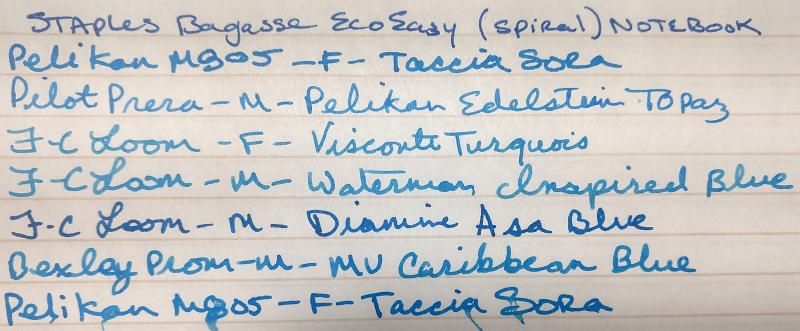 STAPLES Bagasse EcoEasy (spiral) NOTEBOOK
Pelikan M805 - F - Taccia Sora
Pilot Prera - M - Pelikan Edelstein Topaz
F-C Loom - F - Visconti Turquois
F-C Loom - M - Waterman Inspired Blue
F-C Loom - M - Diamine Asa Blue
Bexley Prom - M - MV Caribbean Blue
Pelikan M805 - F - Taccia Sora